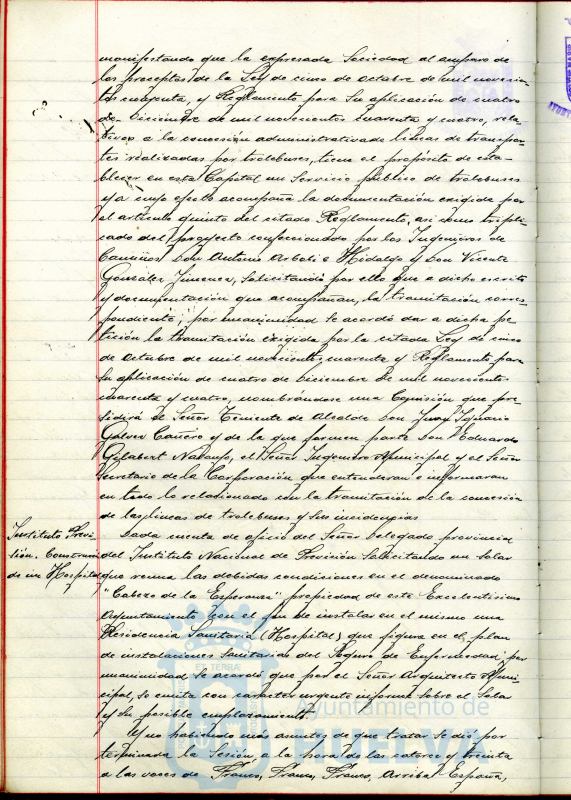 manifestando que la expresada Sociedad al amparo de
los preceptos de la Ley de cinco de Octubre de mil novecien-
tos cuarenta, y Reglamento para su aplicación de cuatro
de Diciembre de mil novecientos cuarenta y cuatro, rela-
tivos a la concesión administrativa de lineas de transpor-
tes realizadas por trolebuses, tiene el propósito de esta-
blecer en esta Capital un Servicio público de trolebuses
y a cuyo efecto acompaña la documentación exigida por
el articulo quinto del citado Reglamento, asi como tripli-
cado del proyecto confeccionado por los Ingenieros de
Caminos Don Antonio Arboli e Hidalgo y Don Vicente
González Jimenez, solicitando por ello que a dicho escrito
y documentación que acompañan, la tramitación corres-
pondiente; por unanimidad se acordó dar a dicha pe-
tición la tramitación exigida por la citada Ley de cinco
de Octubre de mil novecientos cuarenta y Reglamento para
su aplicación de cuatro de Diciembre de mil novecientos
cuarenta y cuatro, nombrándose una Comisión que pre-
sidirá el Señor Teniente de Alcalde Don Juan Ignacio
Galvez Cañero y de la que formen parte Don Eduardo
Gelabert Naranjo, el Señor Ingeniero Municipal y el Señor
Secretario de la Corporación que entenderan e informaran
en todo lo relacionado con la tramitación de la concesión
de las lineas de trolebuses y sus incidencias
Instituto Previ-
sión.
de un Hospital
Dada cuenta de oficio del Señor Delegado provincial
del Instituto Nacional de Previsión solicitando un Solar
que reuna las debidas condiciones en el denominado
"Cabezo de la Esperanza" propiedad de este Excelentisimo
Ayuntamiento con el fin de instalar en el mismo una
Residencia Sanitaria (Hospital) que figura en el plan
de instalaciones Sanitarias del Seguro de Enfermedad; por
unanimidad se acordó que por el Señor Arquitecto Muni-
cipal, se emita con caracter urgente informe sobre el Solar
y su posible emplazamiento.
Y no habiendo más asuntos de que tratar se dió por
terminada la Sesión, a la hora de las catorce y treinta
a las voces de Franco, Franco, Franco, Arriba España,
ET TERRÆ
Ayuntamiento de
HUELVA